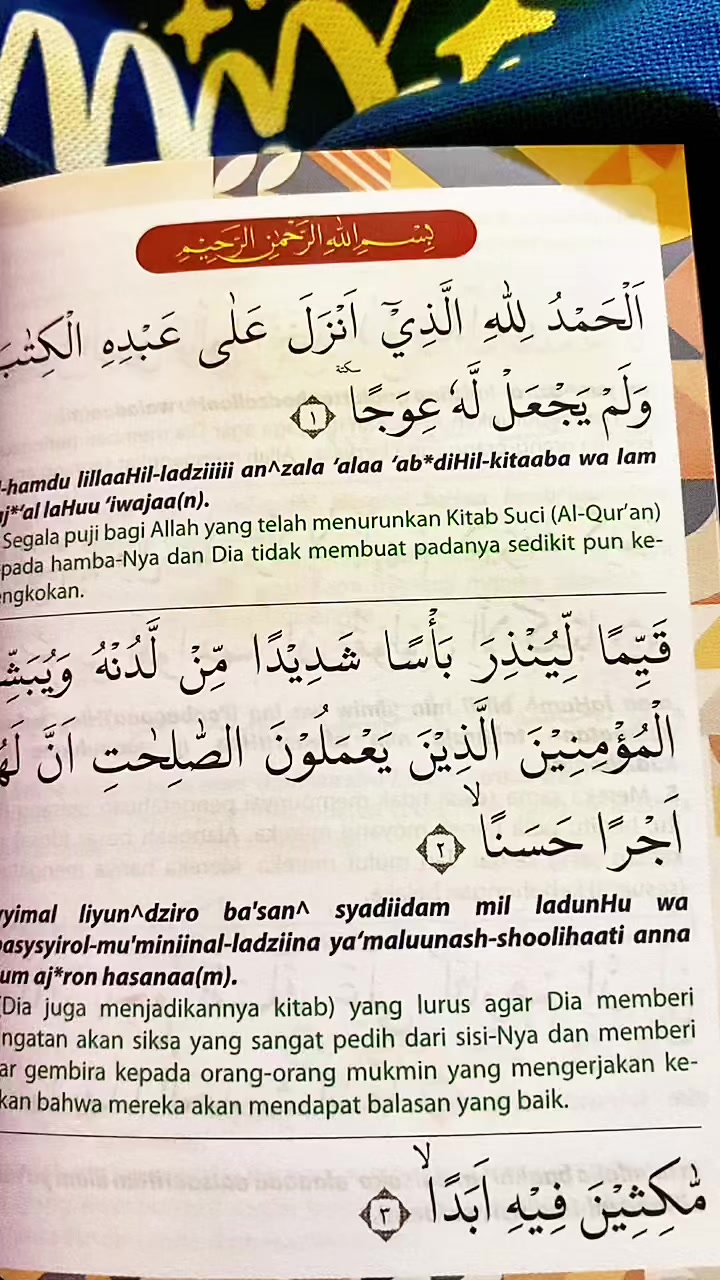 بِسْمِ اللهِ الرَّحْمٰنِ الرَّحِيْمِ
اَلْحَمْدُ لِلّٰهِ الَّذِيْٓ اَنْزَلَ عَلٰى عَبْدِهِ الْكِتٰبَ
وَلَمْ يَجْعَلْ لَّهٗ عِوَجًا ۜ ١
-hamdu lillaaHil-ladziiiii an^zala ‘alaa ‘ab*diHil-kitaaba wa lam
j*‘al laHuu ‘iwajaa(n).
Segala puji bagi Allah yang telah menurunkan Kitab Suci (Al-Qur’an)
pada hamba-Nya dan Dia tidak membuat padanya sedikit pun ke-
ngkokan.
قَيِّمًا لِّيُنْذِرَ بَأْسًا شَدِيْدًا مِّنْ لَّدُنْهُ وَيُبَشِّ
الْمُؤْمِنِيْنَ الَّذِيْنَ يَعْمَلُوْنَ الصّٰلِحٰتِ اَنَّ لَهُ
اَجْرًا حَسَنًاۙ ٢
yyimal liyun^dziro ba'san^ syadiidam mil ladunHu wa
basysyirol-mu'miniinal-ladziina ya‘maluunash-shoolihaati anna
um aj*ron hasanaa(m).
(Dia juga menjadikannya kitab) yang lurus agar Dia memberi
ngatan akan siksa yang sangat pedih dari sisi-Nya dan memberi
ar gembira kepada orang-orang mukmin yang mengerjakan ke-
kan bahwa mereka akan mendapat balasan yang baik.
مّٰكِثِيْنَ فِيْهِ اَبَدًاۙ ٣